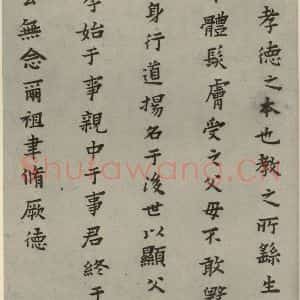 孝德之本也教之所繇生
體髮膚受之父毋不敢毀
身行道揚名于後世以顯父
孝始于事親中于事君終于
云無念爾祖聿脩厥德
Shufawang.Cn